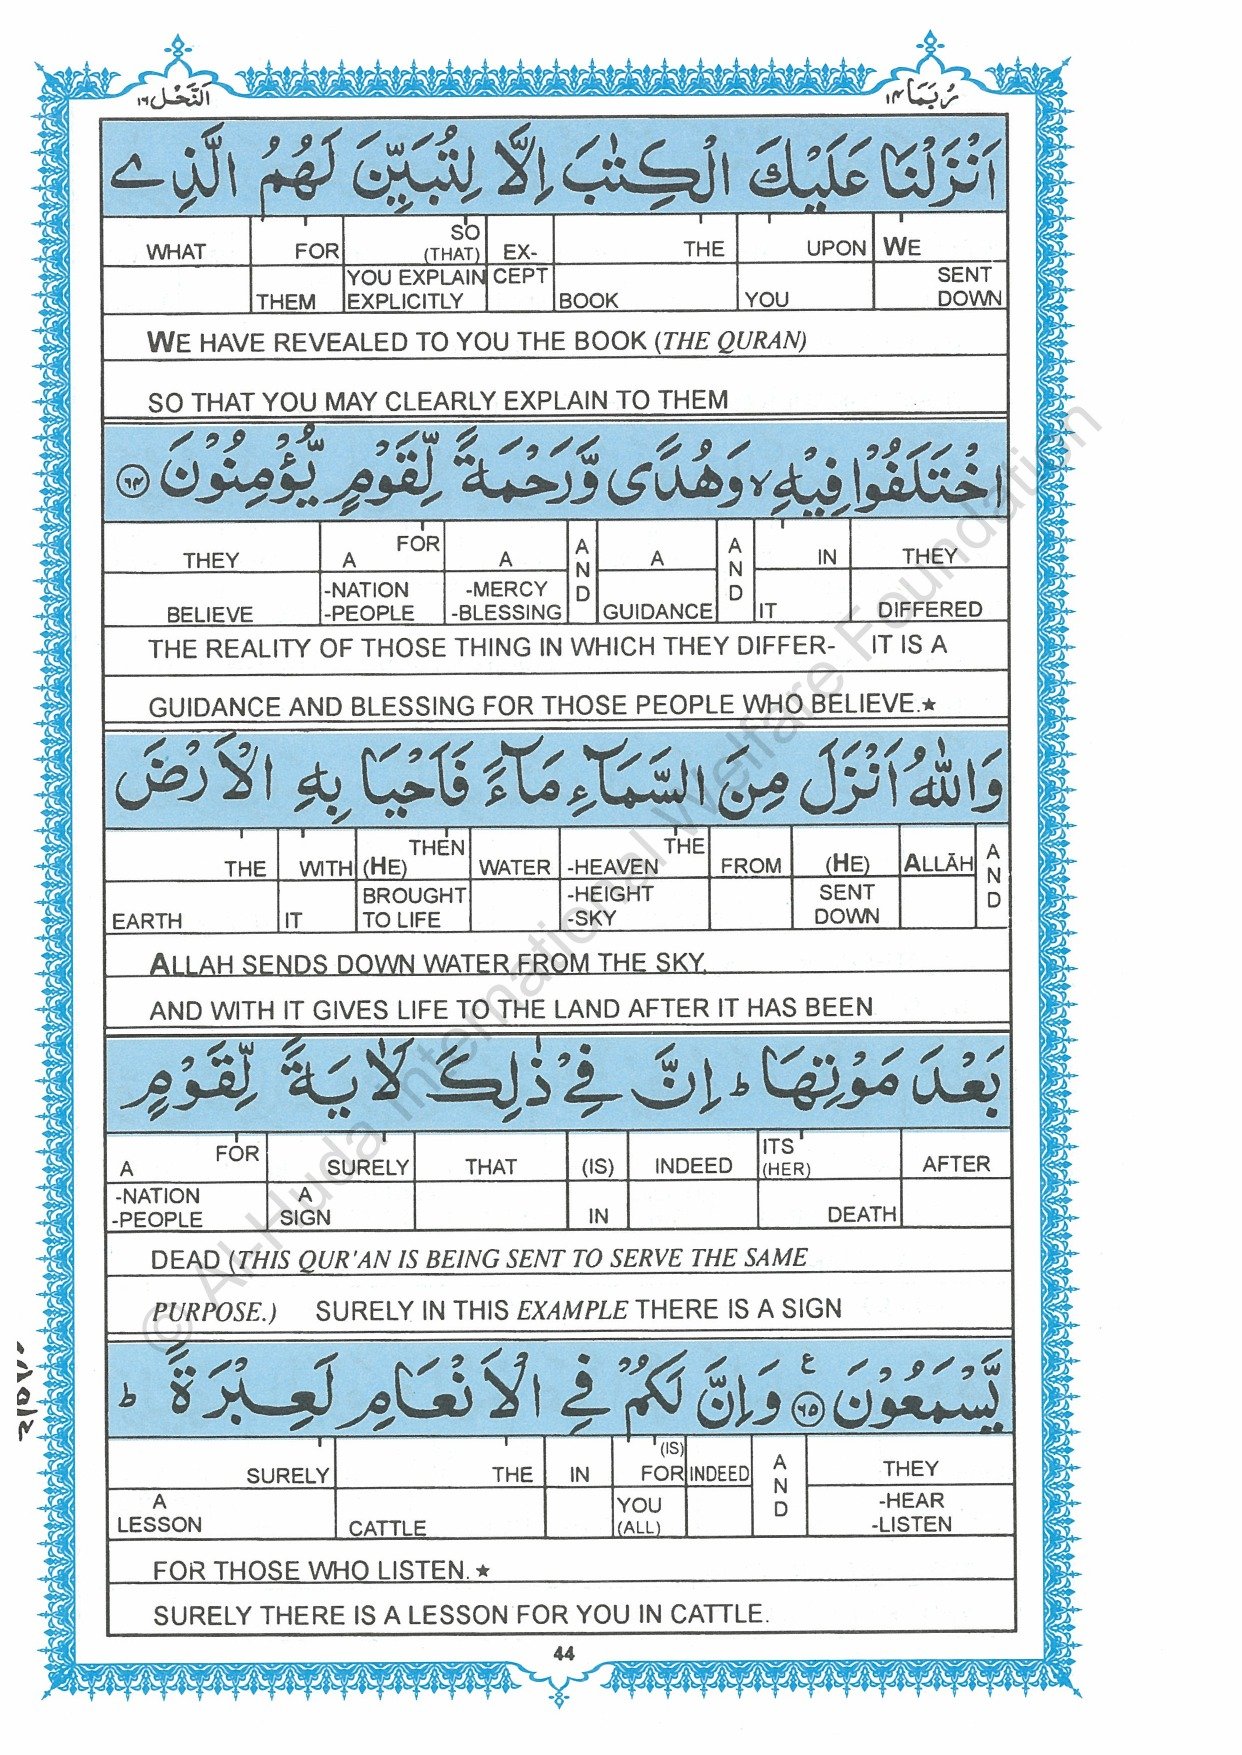 اَلنَّحْل ١٦
رُبَمَا ١٤
اَنْزَلْنَا عَلَيْكَ الْكِتٰبَ اِلَّا لِتُبَيِّنَ لَهُمُ الَّذِي
WHAT FOR SO (THAT) EX- THE UPON WE
THEM YOU EXPLAIN EXPLICITLY CEPT BOOK YOU SENT DOWN
WE HAVE REVEALED TO YOU THE BOOK (THE QURAN)
SO THAT YOU MAY CLEARLY EXPLAIN TO THEM
اخْتَلَفُوْا فِيْهِ ۙ وَهُدًى وَّرَحْمَةً لِّقَوْمٍ يُّؤْمِنُوْنَ ٦٤
THEY A FOR A AND A AND IN THEY
BELIEVE -NATION -PEOPLE -MERCY -BLESSING GUIDANCE IT DIFFERED
THE REALITY OF THOSE THING IN WHICH THEY DIFFER- IT IS A
GUIDANCE AND BLESSING FOR THOSE PEOPLE WHO BELIEVE.★
وَاللّٰهُ اَنْزَلَ مِنَ السَّمَآءِ مَآءً فَاَحْيَا بِهِ الْاَرْضَ
THE WITH THEN (HE) WATER THE -HEAVEN FROM (HE) ALLĀH AND
EARTH IT BROUGHT TO LIFE -HEIGHT -SKY SENT DOWN
ALLAH SENDS DOWN WATER FROM THE SKY.
AND WITH IT GIVES LIFE TO THE LAND AFTER IT HAS BEEN
بَعْدَ مَوْتِهَا ؕ اِنَّ فِيْ ذٰلِكَ لَاٰيَةً لِّقَوْمٍ
A FOR SURELY THAT (IS) INDEED ITS (HER) AFTER
-NATION -PEOPLE A SIGN IN DEATH
DEAD (THIS QUR'AN IS BEING SENT TO SERVE THE SAME
PURPOSE.) SURELY IN THIS EXAMPLE THERE IS A SIGN
يَّسْمَعُوْنَ ٦٥ ع وَاِنَّ لَكُمْ فِي الْاَنْعَامِ لَعِبْرَةً ؕ
SURELY THE IN (IS) FOR INDEED AND THEY
A LESSON CATTLE YOU (ALL) -HEAR -LISTEN
FOR THOSE WHO LISTEN.★
SURELY THERE IS A LESSON FOR YOU IN CATTLE.
44
© Al-Huda International Welfare Foundation